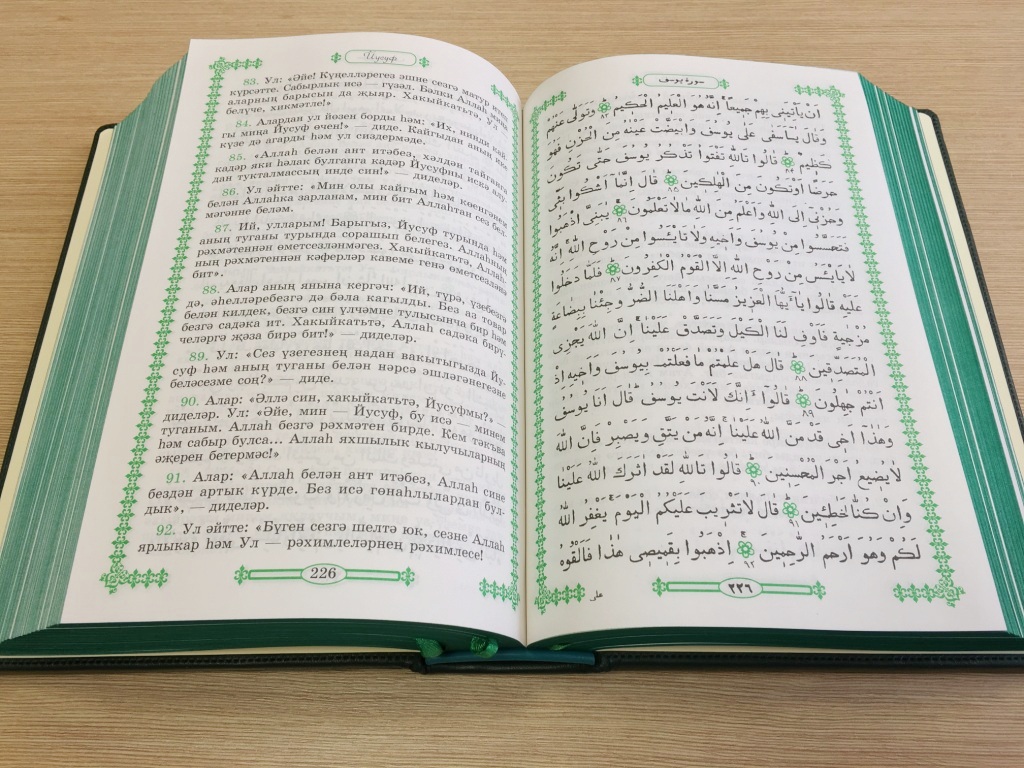 Йусуф
83. Ул: «Әйе! Күңелләрегез эшне сезгә матур итеп
күрсәтте. Сабырлык исә — гүзәл. Бәлки Аллаһ миңа
аларның барысын да җыяр. Хакыйкатьтә, Ул —
белүче, хикмәтле!»
84. Алардан ул йөзен борды һәм: «Их, нинди кай-
гы миңа Йусуф өчен!» — диде. Кайгыдан аның ике
күзе дә агарды һәм ул сиздермәде.
85. «Аллаһ белән ант итәбез, хәлдән тайганга
кадәр яки һәлак булганга кадәр Йусуфны искә алу-
дан туктaлмассың инде син!» — диделәр.
86. Ул әйтте: «Мин олы кайгым һәм көенгәнем
белән Аллаһка зарланам, мин бит Аллаһтан сез бел-
мәгәнне беләм.
87. Ий, улларым! Барыгыз, Йусуф турында һәм
аның туганы турында сорашып белегез. Аллаһның
рәхмәтеннән өметсезләнмәгез. Хакыйкатьтә, Аллаһ-
ның рәхмәтеннән кәферләр кавеме генә өметсезләнә
бит».
88. Алар аның янына кергәч: «Ий, түрә, үзебезгә
дә, әһелләребезгә дә бәла кагылды. Без аз товар
белән килдек, безгә син үлчәмне тулысынча бир һәм
безгә садәка ит. Хакыйкатьтә, Аллаһ садәка бирү-
челәргә җәза бирә бит!» — диделәр.
89. Ул: «Сез үзегезнең надан вакытыгызда Йу-
суф һәм аның туганы белән нәрсә эшләгәнегезне
беләсезме соң?» — диде.
90. Алар: «Әллә син, хакыйкатьтә, Йусуфмы?» —
диделәр. Ул: «Әйе, мин — Йусуф, бу исә — минем
туганым. Аллаһ безгә рәхмәтен бирде. Кем тәкъва
һәм сабыр булса... Аллаһ яхшылык кылучыларның
әҗерен бетермәс!»
91. Алар: «Аллаһ белән ант итәбез, Аллаһ сине
бездән артык күрде. Без исә гөнаһлылардан бул-
дык», — диделәр.
92. Ул әйтте: «Бүген сезгә шелтә юк, сезне Аллаһ
ярлыкар һәм Ул — рәхимлеләрнең рәхимлесе!
226
سورة يوسف
اَنْ يَأْتِيَنِى بِهِمْ جَمِيعًا اِنَّهُ هُوَ الْعَلِيمُ الْحَكِيمُ ٨٣ وَتَوَلّٰى عَنْهُمْ
وَقَالَ يَٓا اَسَفٰى عَلٰى يُوسُفَ وَابْيَضَّتْ عَيْنَاهُ مِنَ الْحُزْنِ فَهُوَ
كَظِيمٌ ٨٤ قَالُوا تَاللّٰهِ تَفْتَؤُا تَذْكُرُ يُوسُفَ حَتّٰى تَكُونَ
حَرَضًا اَوْ تَكُونَ مِنَ الْهٰلِكِينَ ٨٥ قَالَ اِنَّمَا اَشْكُوا بَثِّى
وَحُزْنِى اِلَى اللّٰهِ وَاَعْلَمُ مِنَ اللّٰهِ مَالَا تَعْلَمُونَ ٨٦ يٰبَنِىَّ اذْهَبُوا
فَتَحَسَّسُوا مِنْ يُوسُفَ وَاَخِيهِ وَلَا تَايْئَسُوا مِنْ رَوْحِ اللّٰهِ اِنَّهُ
لَا يَايْئَسُ مِنْ رَوْحِ اللّٰهِ اِلَّا الْقَوْمُ الْكٰفِرُونَ ٨٧ فَلَمَّا دَخَلُوا
عَلَيْهِ قَالُوا يَٓا اَيُّهَا الْعَزِيزُ مَسَّنَا وَاَهْلَنَا الضُّرُّ وَجِئْنَا بِبِضَاعَةٍ
مُزْجٰيةٍ فَاَوْفِ لَنَا الْكَيْلَ وَتَصَدَّقْ عَلَيْنَا اِنَّ اللّٰهَ يَجْزِى
الْمُتَصَدِّقِينَ ٨٨ قَالَ هَلْ عَلِمْتُمْ مَا فَعَلْتُمْ بِيُوسُفَ وَاَخِيهِ اِذْ
اَنْتُمْ جٰهِلُونَ ٨٩ قَالُوا ءَاِنَّكَ لَاَنْتَ يُوسُفُ قَالَ اَنَا يُوسُفُ
وَهٰذَا اَخِى قَدْ مَنَّ اللّٰهُ عَلَيْنَا اِنَّهُ مَنْ يَتَّقِ وَيَصْبِرْ فَاِنَّ اللّٰهَ
لَا يُضِيعُ اَجْرَ الْمُحْسِنِينَ ٩٠ قَالُوا تَاللّٰهِ لَقَدْ اٰثَرَكَ اللّٰهُ عَلَيْنَا
وَاِنْ كُنَّا لَخٰطِـِٔينَ ٩١ قَالَ لَا تَثْرِيبَ عَلَيْكُمُ الْيَوْمَ يَغْفِرُ اللّٰهُ
لَكُمْ وَهُوَ اَرْحَمُ الرّٰحِمِينَ ٩٢ اِذْهَبُوا بِقَمِيصِى هٰذَا فَاَلْقُوهُ
٢٢٦
على